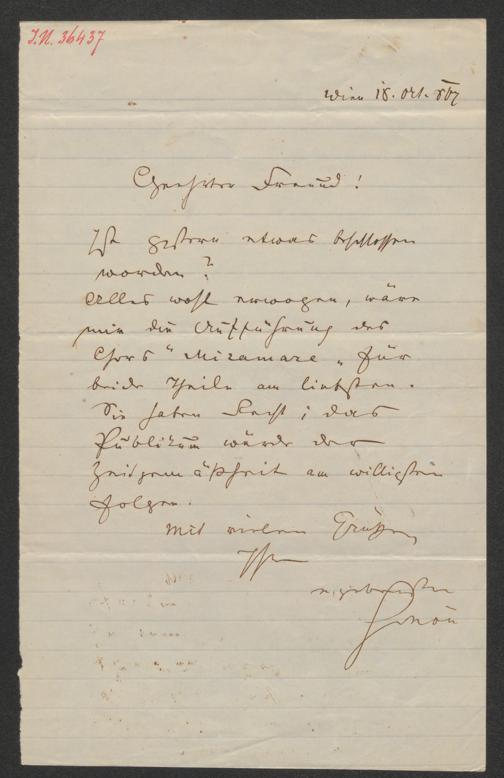 I.N. 36437
Wien 18. Oct. 867
Geehrter Freund!
Ist gestern etwas beschlossen
worden?
Alles wohl erwogen, wäre
mir die Aufführung des
Chors "Miramare" für
beide Theile am liebsten.
Sie haben Recht; das
Publikum würde der
Zeitgemäßheit am willigsten
folgen.
Mit vielen Grüßen
Ihr
ergebenster